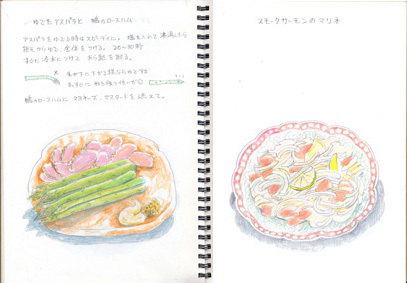 ゆでたアスパラと 鴨のロースハム
アスパラをゆでる時はスピーディに。塩を入れて沸騰したら
根元からゆで、全体をつける。20〜30秒
すぐに冷水につけて
鴨のロースハムに マヨネーズ、マスタードを添えて。
スモークサーモンのマリネ